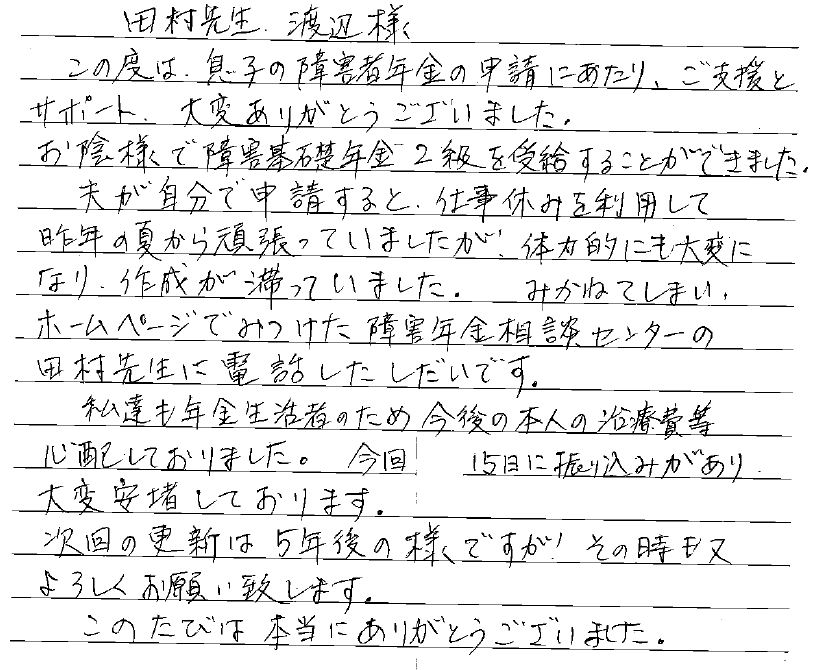 田村先生、渡辺様
この度は、息子の障害者年金の申請にあたり、ご支援と
サポート、大変ありがとうございました。
お陰様で障害基礎年金2級を受給することができました。
夫が自分で申請すると、仕事休みを利用して
昨年の夏から頑張っていましたが、体力的にも大変に
なり、作成が滞っていました。 みかねてしまい、
ホームページでみつけた障害年金相談センターの
田村先生に電話したしだいです。
私達も年金生活者のため今後の本人の治療費等
心配しておりました。 今回 15日に振り込みがあり
大変安堵しております。
次回の更新は5年後の様ですが、その時も又
よろしくお願い致します。
このたびは本当にありがとうございました。